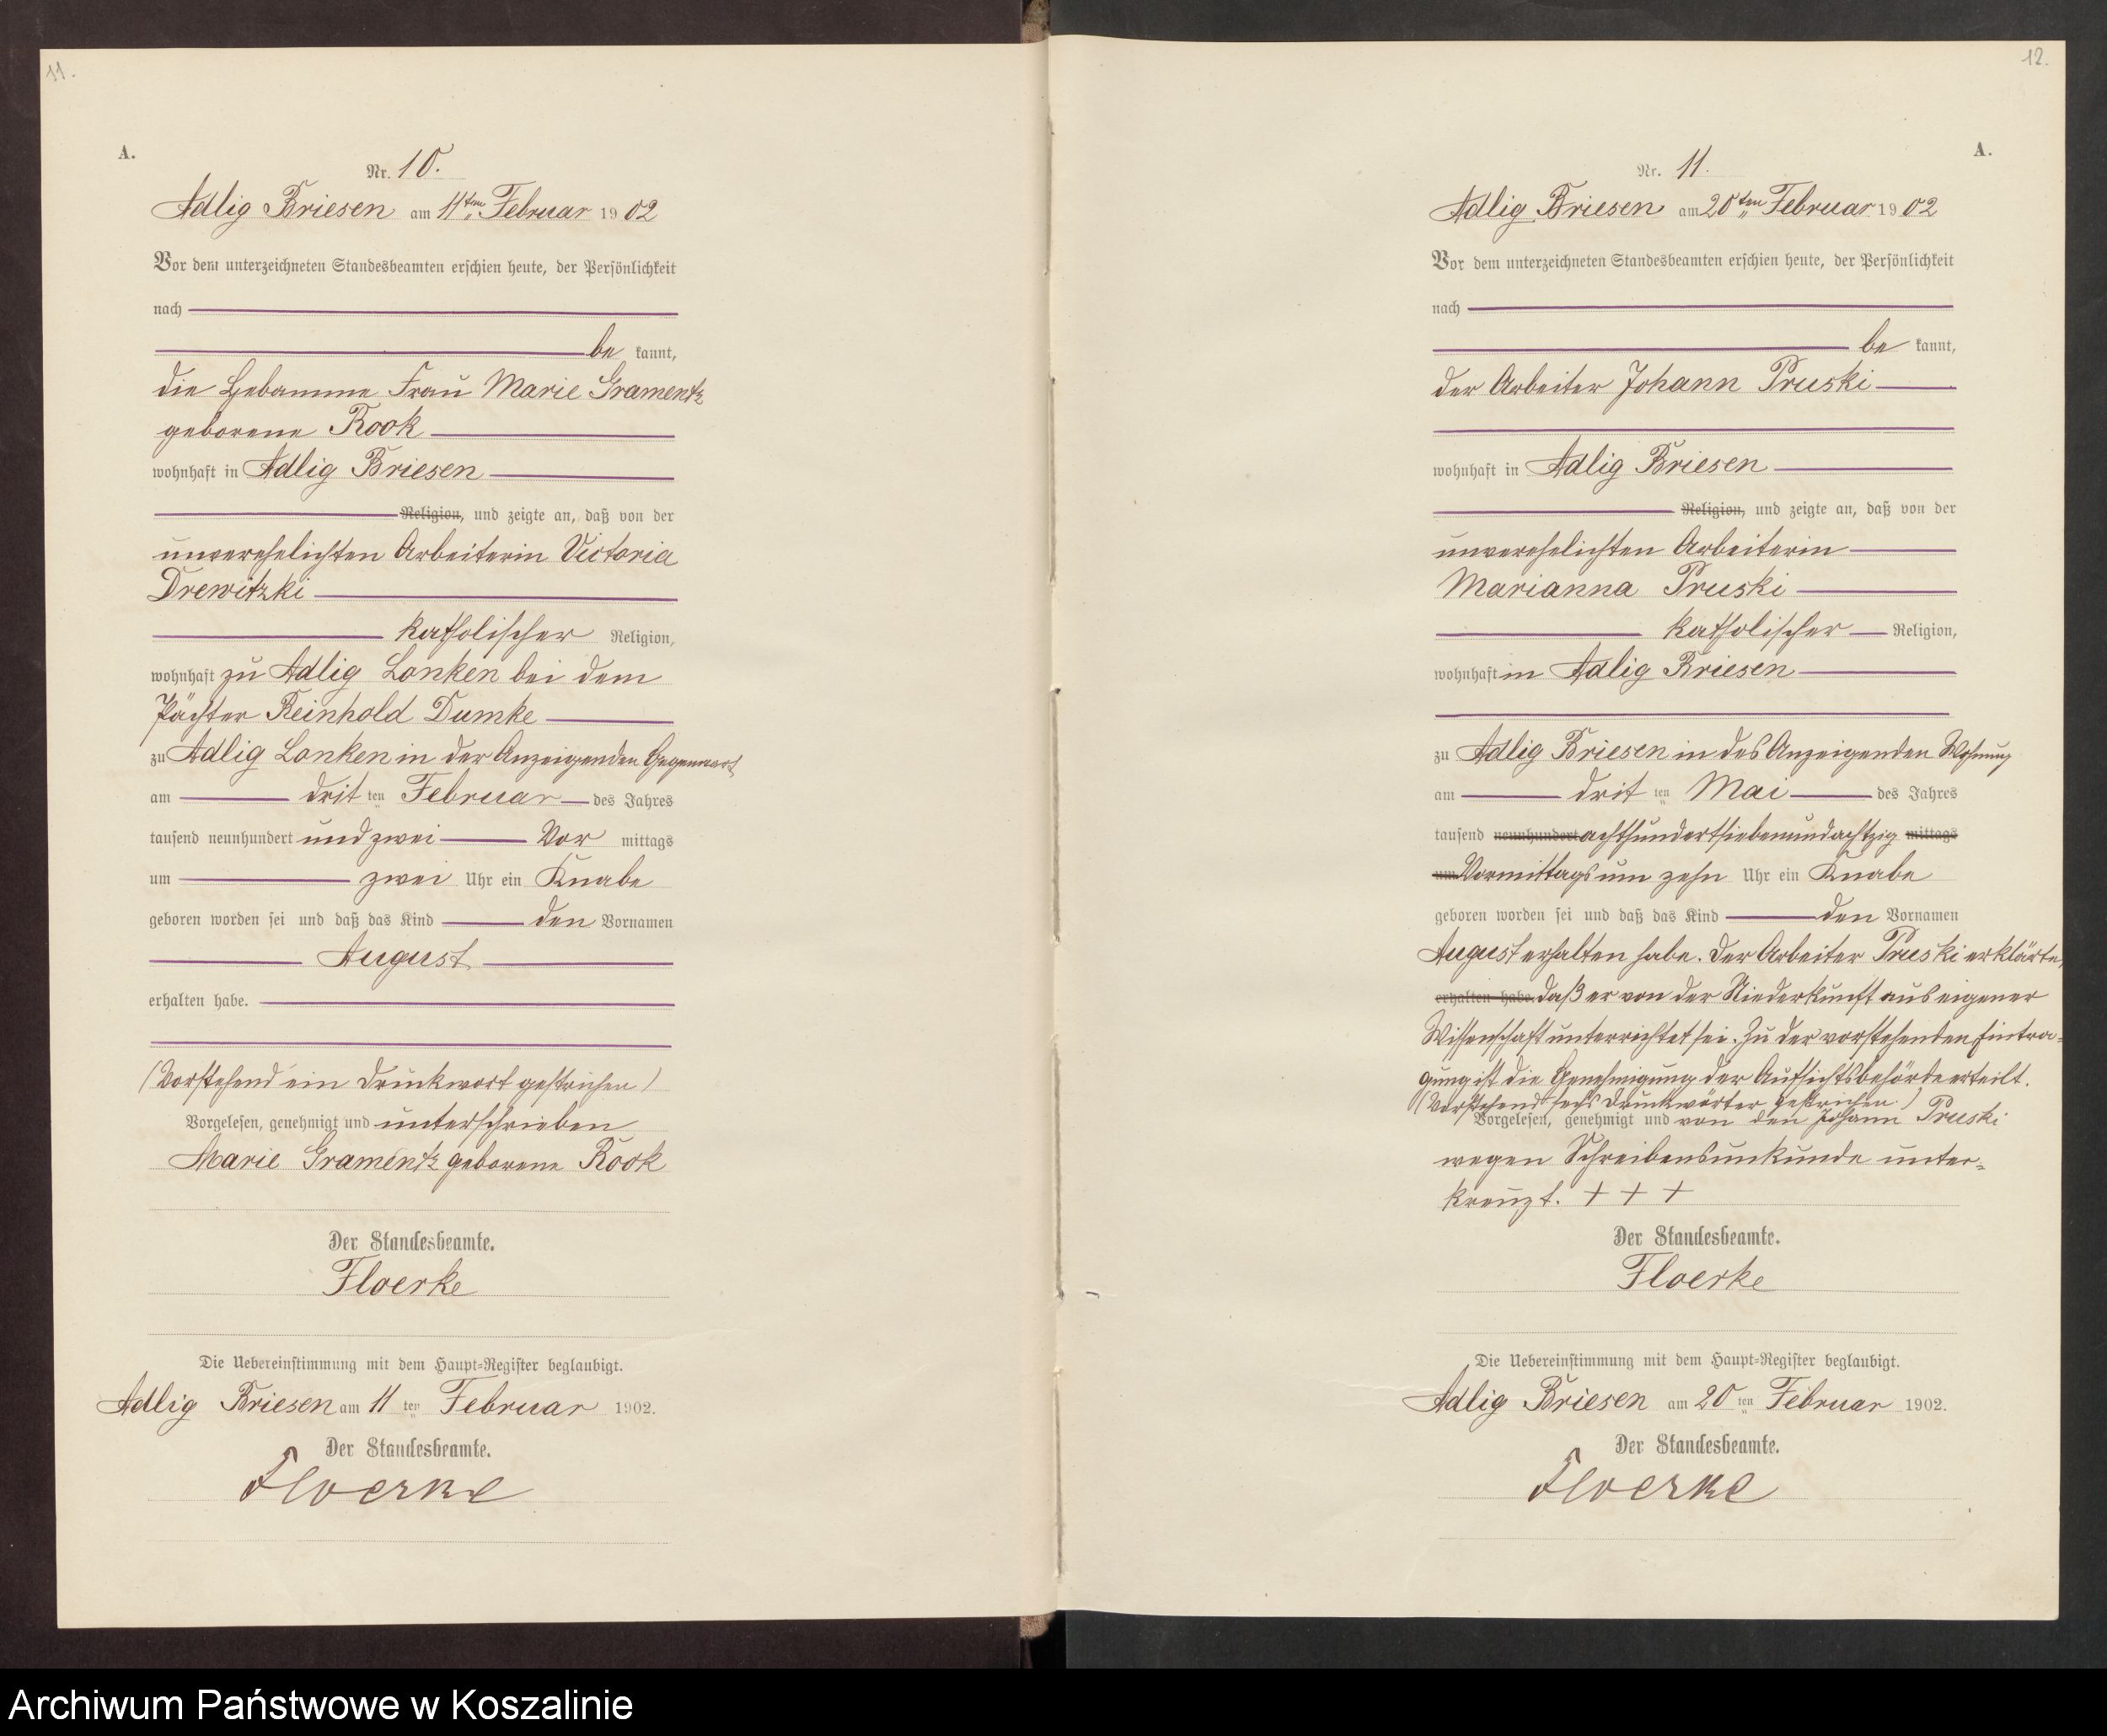 11.
A.
Nr. 10.
Adlig Briesen am 11ten Februar 1902
Vor dem unterzeichneten Standesbeamten erschien heute, der Persönlichkeit
nach
be kannt,
die Hebamme Frau Marie Gramentz
geborene Rook
wohnhaft in Adlig Briesen
Religion, und zeigte an, daß von der
unverehelichten Arbeiterin Victoria
Drewitzki
katholischer Religion,
wohnhaft zu Adlig Lonken bei dem
Pächter Reinhold Dumke
zu Adlig Lonken in der Anzeigenden Gegenwart
am drit ten Februar des Jahres
tausend neunhundert und zwei Vor mittags
um zwei Uhr ein Knabe
geboren worden sei und daß das Kind den Vornamen
August
erhalten habe.
(Vorstehend ein Druckwort gestrichen)
Vorgelesen, genehmigt und unterschrieben
Marie Gramentz geborene Rook
Der Standesbeamte.
Floerke
Die Uebereinstimmung mit dem Haupt-Register beglaubigt.
Adlig Briesen am 11 ten Februar 1902.
Der Standesbeamte.
Floerke
12.
A.
Nr. 11.
Adlig Briesen am 20ten Februar 1902
Vor dem unterzeichneten Standesbeamten erschien heute, der Persönlichkeit
nach
be kannt,
der Arbeiter Johann Pruski
wohnhaft in Adlig Briesen
Religion, und zeigte an, daß von der
unverehelichten Arbeiterin
Marianna Pruski
katholischer Religion,
wohnhaft in Adlig Briesen
zu Adlig Briesen in des Anzeigenden Wohnung
am drit ten Mai des Jahres
tausend neunhundert achthundertsiebenundachtzig mittags
um Vormittags um zehn Uhr ein Knabe
geboren worden sei und daß das Kind den Vornamen
August erhalten habe. Der Arbeiter Pruski erklärte,
erhalten habe. daß er von der Niederkunft aus eigener
Wissenschaft unterrichtet sei. Zu der vorstehenden Eintra-
gung ist die Genehmigung der Aufsichtsbehörde erteilt.
(Vorstehend sechs Druckwörter gestrichen.)
Vorgelesen, genehmigt und von den Johann Pruski
wegen Schreibensunkunde unter-
kreuzt. + + +
Der Standesbeamte.
Floerke
Die Uebereinstimmung mit dem Haupt-Register beglaubigt.
Adlig Briesen am 20 ten Februar 1902.
Der Standesbeamte.
Floerke
Archiwum Państwowe w Koszalinie